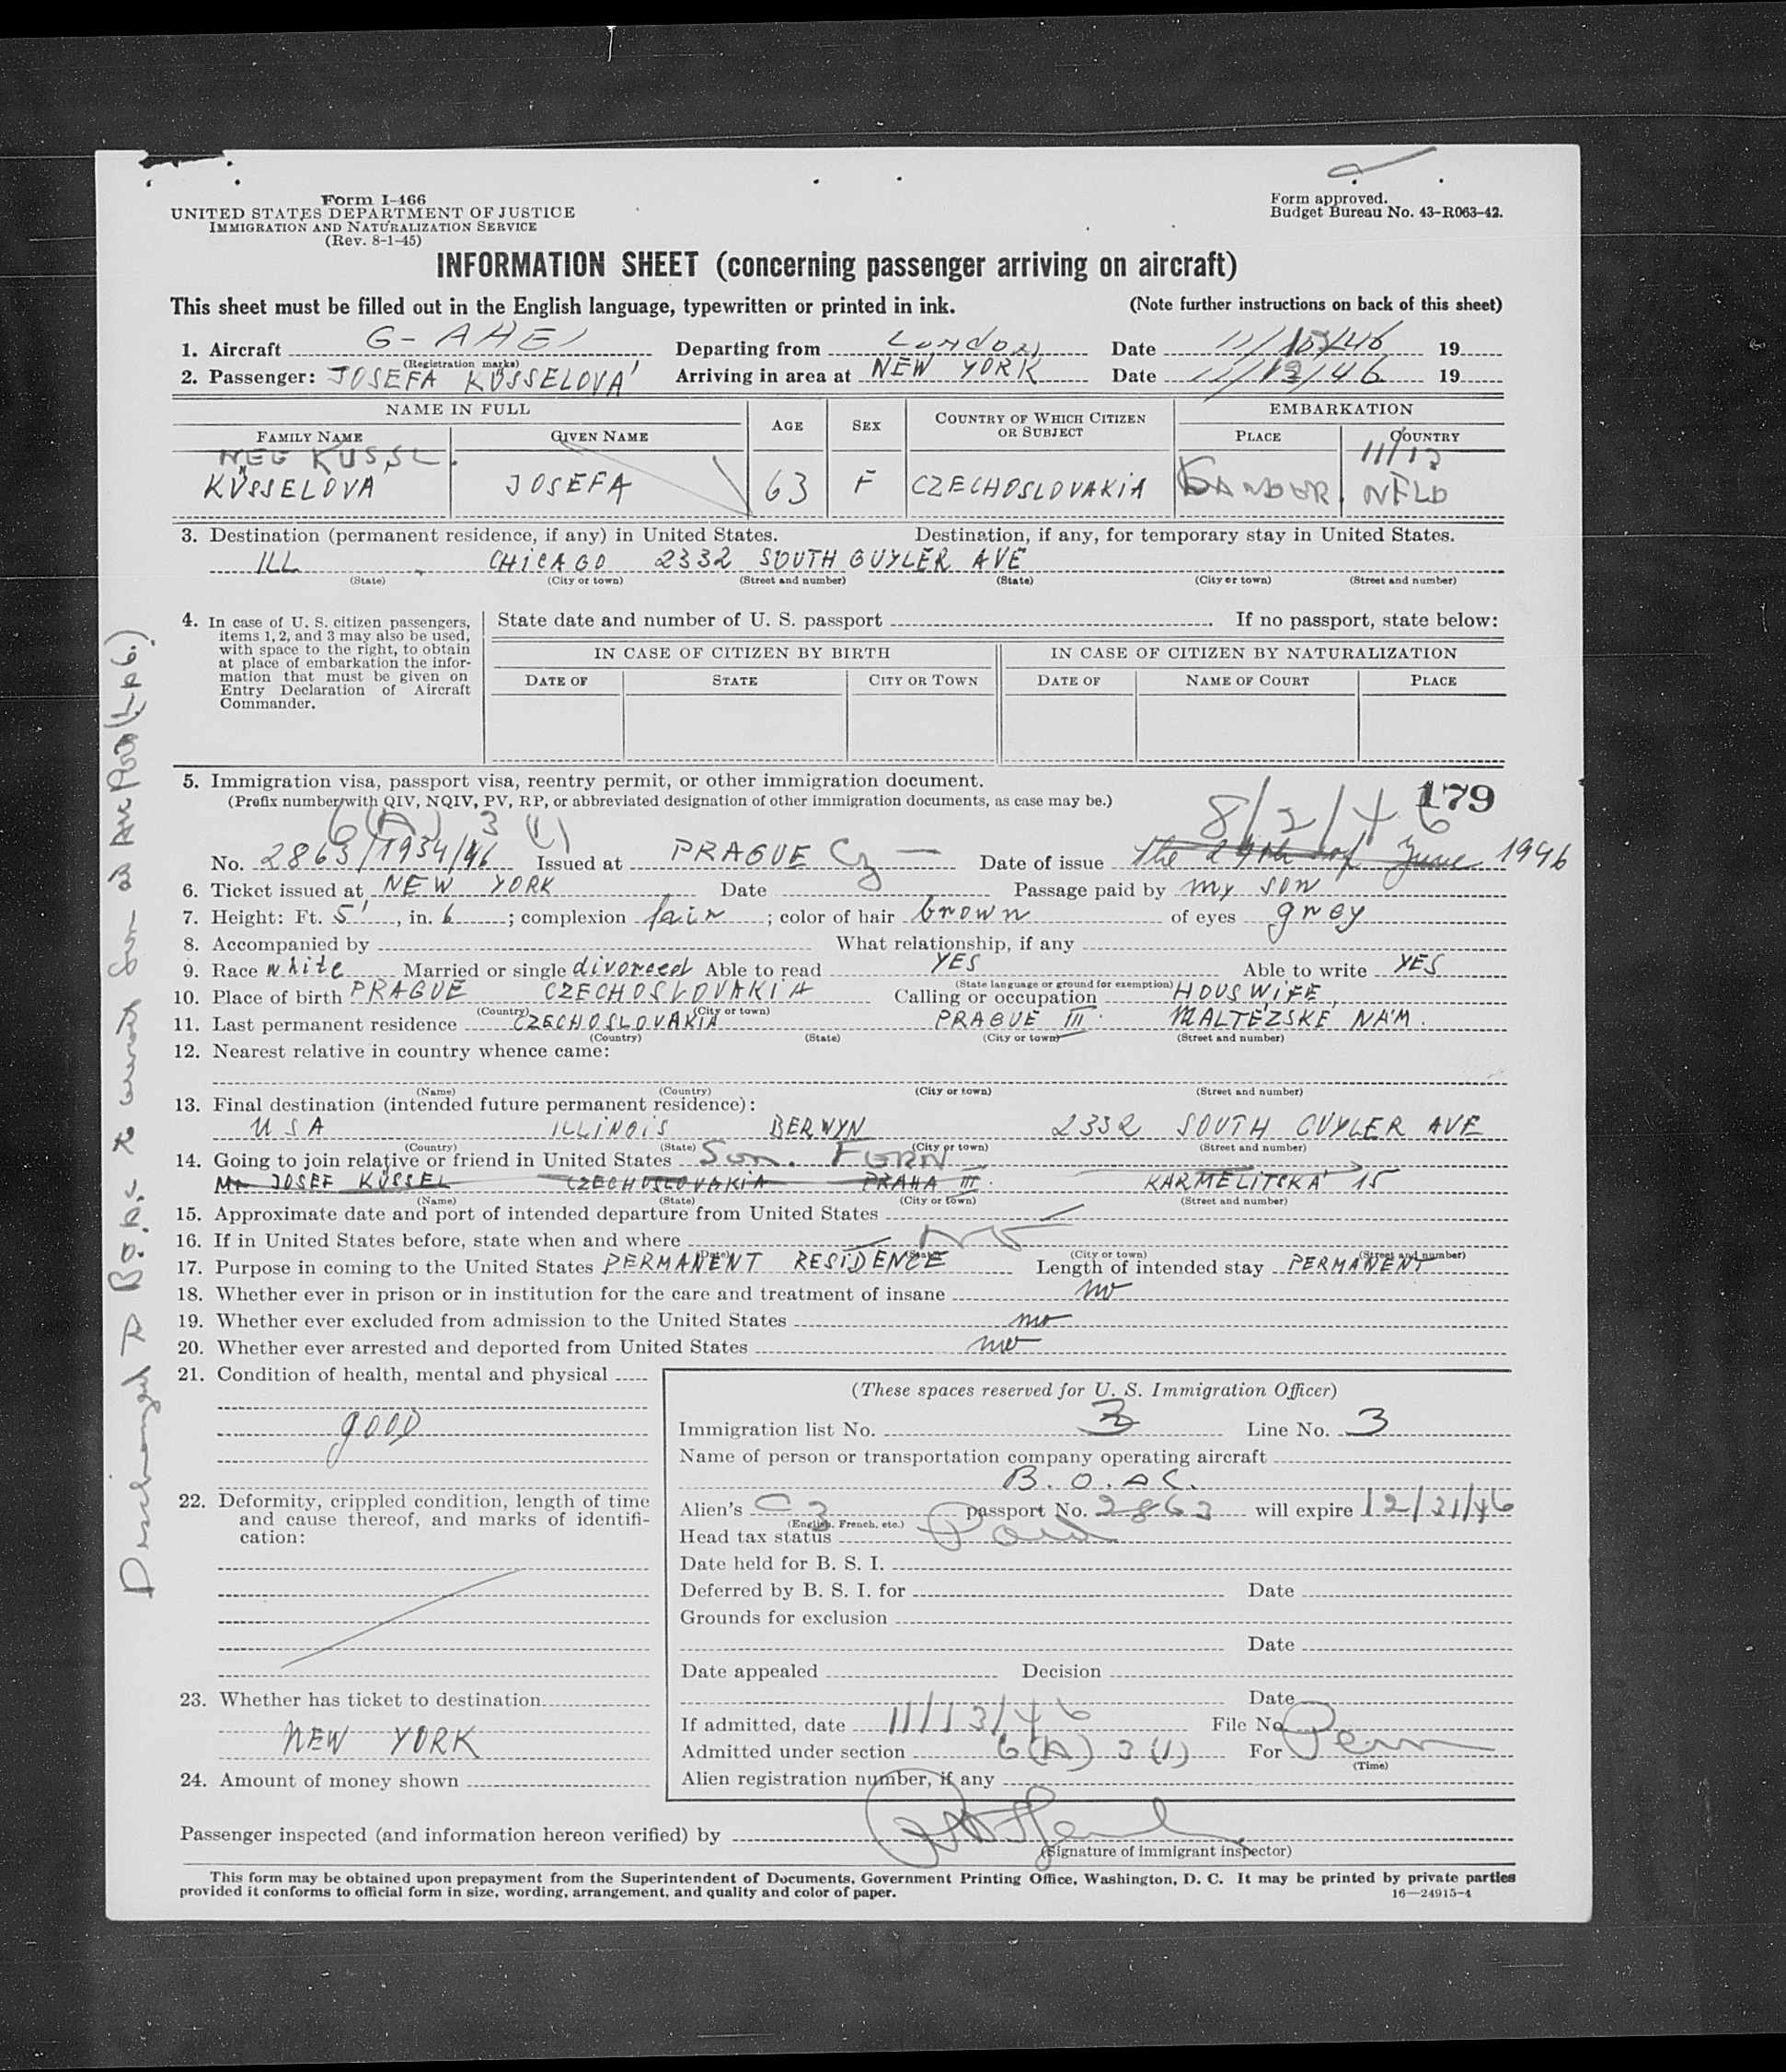 Form I-466
UNITED STATES DEPARTMENT OF JUSTICE
IMMIGRATION AND NATURALIZATION SERVICE
(Rev. 8-1-45)
Form approved.
Budget Bureau No. 43-R063-42.
INFORMATION SHEET (concerning passenger arriving on aircraft)
This sheet must be filled out in the English language, typewritten or printed in ink. (Note further instructions on back of this sheet)
1. Aircraft G-AHEJ Departing from London Date 11/ /46 19
(Registration marks)
2. Passenger: JOSEFA KÜSSELOVA' Arriving in area at NEW YORK Date 11/13/46 19
NAME IN FULL AGE SEX COUNTRY OF WHICH CITIZEN OR SUBJECT EMBARKATION
FAMILY NAME GIVEN NAME PLACE COUNTRY
NEE KUSSL. 11/13
KÜSSELOVA JOSEFA 63 F CZECHOSLOVAKIA GANDER. NFLD
3. Destination (permanent residence, if any) in United States. Destination, if any, for temporary stay in United States.
ILL. CHICAGO 2332 SOUTH GUYLER AVE
(State) (City or town) (Street and number) (State) (City or town) (Street and number)
4. In case of U. S. citizen passengers, items 1, 2, and 3 may also be used, with space to the right, to obtain at place of embarkation the information that must be given on Entry Declaration of Aircraft Commander.
State date and number of U. S. passport . If no passport, state below:
IN CASE OF CITIZEN BY BIRTH IN CASE OF CITIZEN BY NATURALIZATION
DATE OF STATE CITY OR TOWN DATE OF NAME OF COURT PLACE
5. Immigration visa, passport visa, reentry permit, or other immigration document. 179
(Prefix number with QIV, NQIV, PV, RP, or abbreviated designation of other immigration documents, as case may be.)
6(A) 3 (1) 8/2/46
No. 2863/1934/46 Issued at PRAGUE Cz Date of issue the 29th of June 1946
6. Ticket issued at NEW YORK Date Passage paid by my son
7. Height: Ft. 5', in. 6; complexion fair; color of hair brown of eyes grey
8. Accompanied by What relationship, if any
9. Race white Married or single divorced Able to read YES Able to write YES
(State language or ground for exemption)
10. Place of birth PRAGUE CZECHOSLOVAKIA Calling or occupation HOUSWIFE
(Country) (City or town)
11. Last permanent residence CZECHOSLOVAKIA PRAGUE III. MALTÉZSKÉ NÁM.
(Country) (State) (City or town) (Street and number)
12. Nearest relative in country whence came:
(Name) (Country) (City or town) (Street and number)
13. Final destination (intended future permanent residence):
USA ILLINOIS BERWYN 2332 SOUTH CUYLER AVE
(Country) (State) (City or town) (Street and number)
14. Going to join relative or friend in United States Son.
Mr JOSEF KÜSSEL CZECHOSLOVAKIA PRAHA III. KARMELITSKÁ 15
(Name) (State) (City or town) (Street and number)
15. Approximate date and port of intended departure from United States
16. If in United States before, state when and where NO
(Date) (State) (City or town) (Street and number)
17. Purpose in coming to the United States PERMANENT RESIDENCE Length of intended stay PERMANENT
18. Whether ever in prison or in institution for the care and treatment of insane no
19. Whether ever excluded from admission to the United States no
20. Whether ever arrested and deported from United States no
21. Condition of health, mental and physical
GOOD
22. Deformity, crippled condition, length of time and cause thereof, and marks of identification:
23. Whether has ticket to destination
NEW YORK
24. Amount of money shown
(These spaces reserved for U. S. Immigration Officer)
Immigration list No. 3 Line No. 3
Name of person or transportation company operating aircraft
B. O. A C.
Alien's Cz passport No. 2863 will expire 12/31/46
(English, French, etc.)
Head tax status Paid
Date held for B. S. I.
Deferred by B. S. I. for Date
Grounds for exclusion
Date
Date appealed Decision
Date
If admitted, date 11/13/46 File No.
Admitted under section 6(A) 3 (1) For Perm
(Time)
Alien registration number, if any
Passenger inspected (and information hereon verified) by
(Signature of immigrant inspector)
This form may be obtained upon prepayment from the Superintendent of Documents, Government Printing Office, Washington, D. C. It may be printed by private parties
provided it conforms to official form in size, wording, arrangement, and quality and color of paper. 16—24915-4
Discharged to B.O.A.C. to Son at Air Port